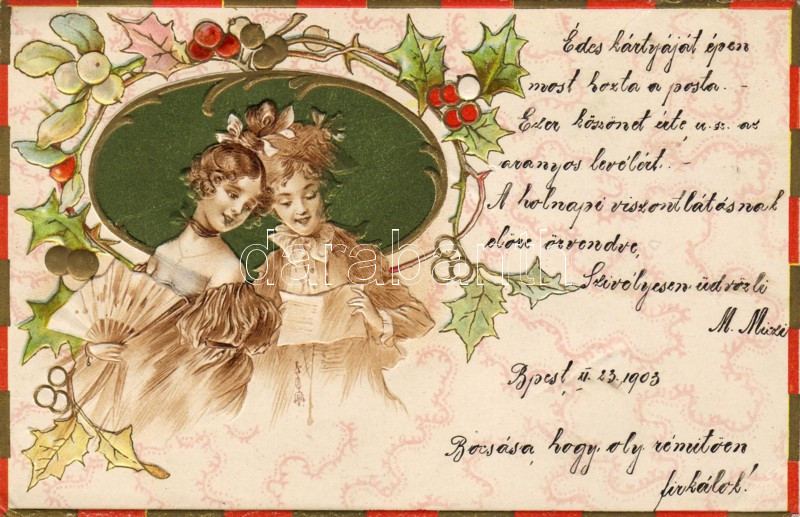 Édes kártyáját épen
most hozta a posta. –
Ezer köszönet érte u. sz. az
aranyos levélért. –
A holnapi viszontlátásnak
előre örvendve,
Szivélyesen üdvözli
M. Mizi
Bpest, II. 23. 1903
Bocsássa, hogy oly rémítően
firkálok!
darabanth